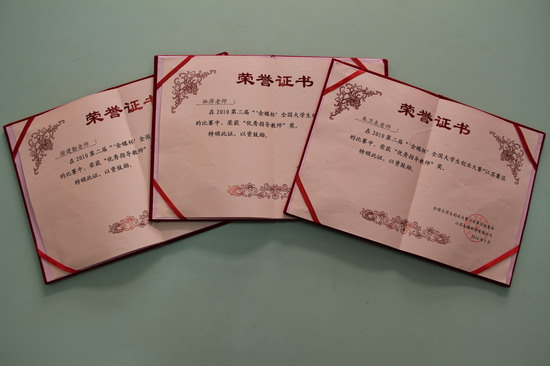 荣誉证书
老师：
在2010第二届“‘金蝶杯’全国
的比赛中，荣获“优秀指导教师”
特颁此证，以资鼓励。
荣誉证书
林萍老师：
在2010第二届“‘金蝶杯’全国大学生
的比赛中，荣获“优秀指导教师”奖。
特颁此证，以资鼓励。
荣誉证书
朱卫东老师：
在2010第二届“‘金蝶杯’全国大学生创业大赛”江苏赛区
的比赛中，荣获“优秀指导教师”奖。
特颁此证，以资鼓励。